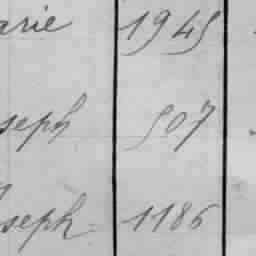 arie 1945
seph 507
seph 1186